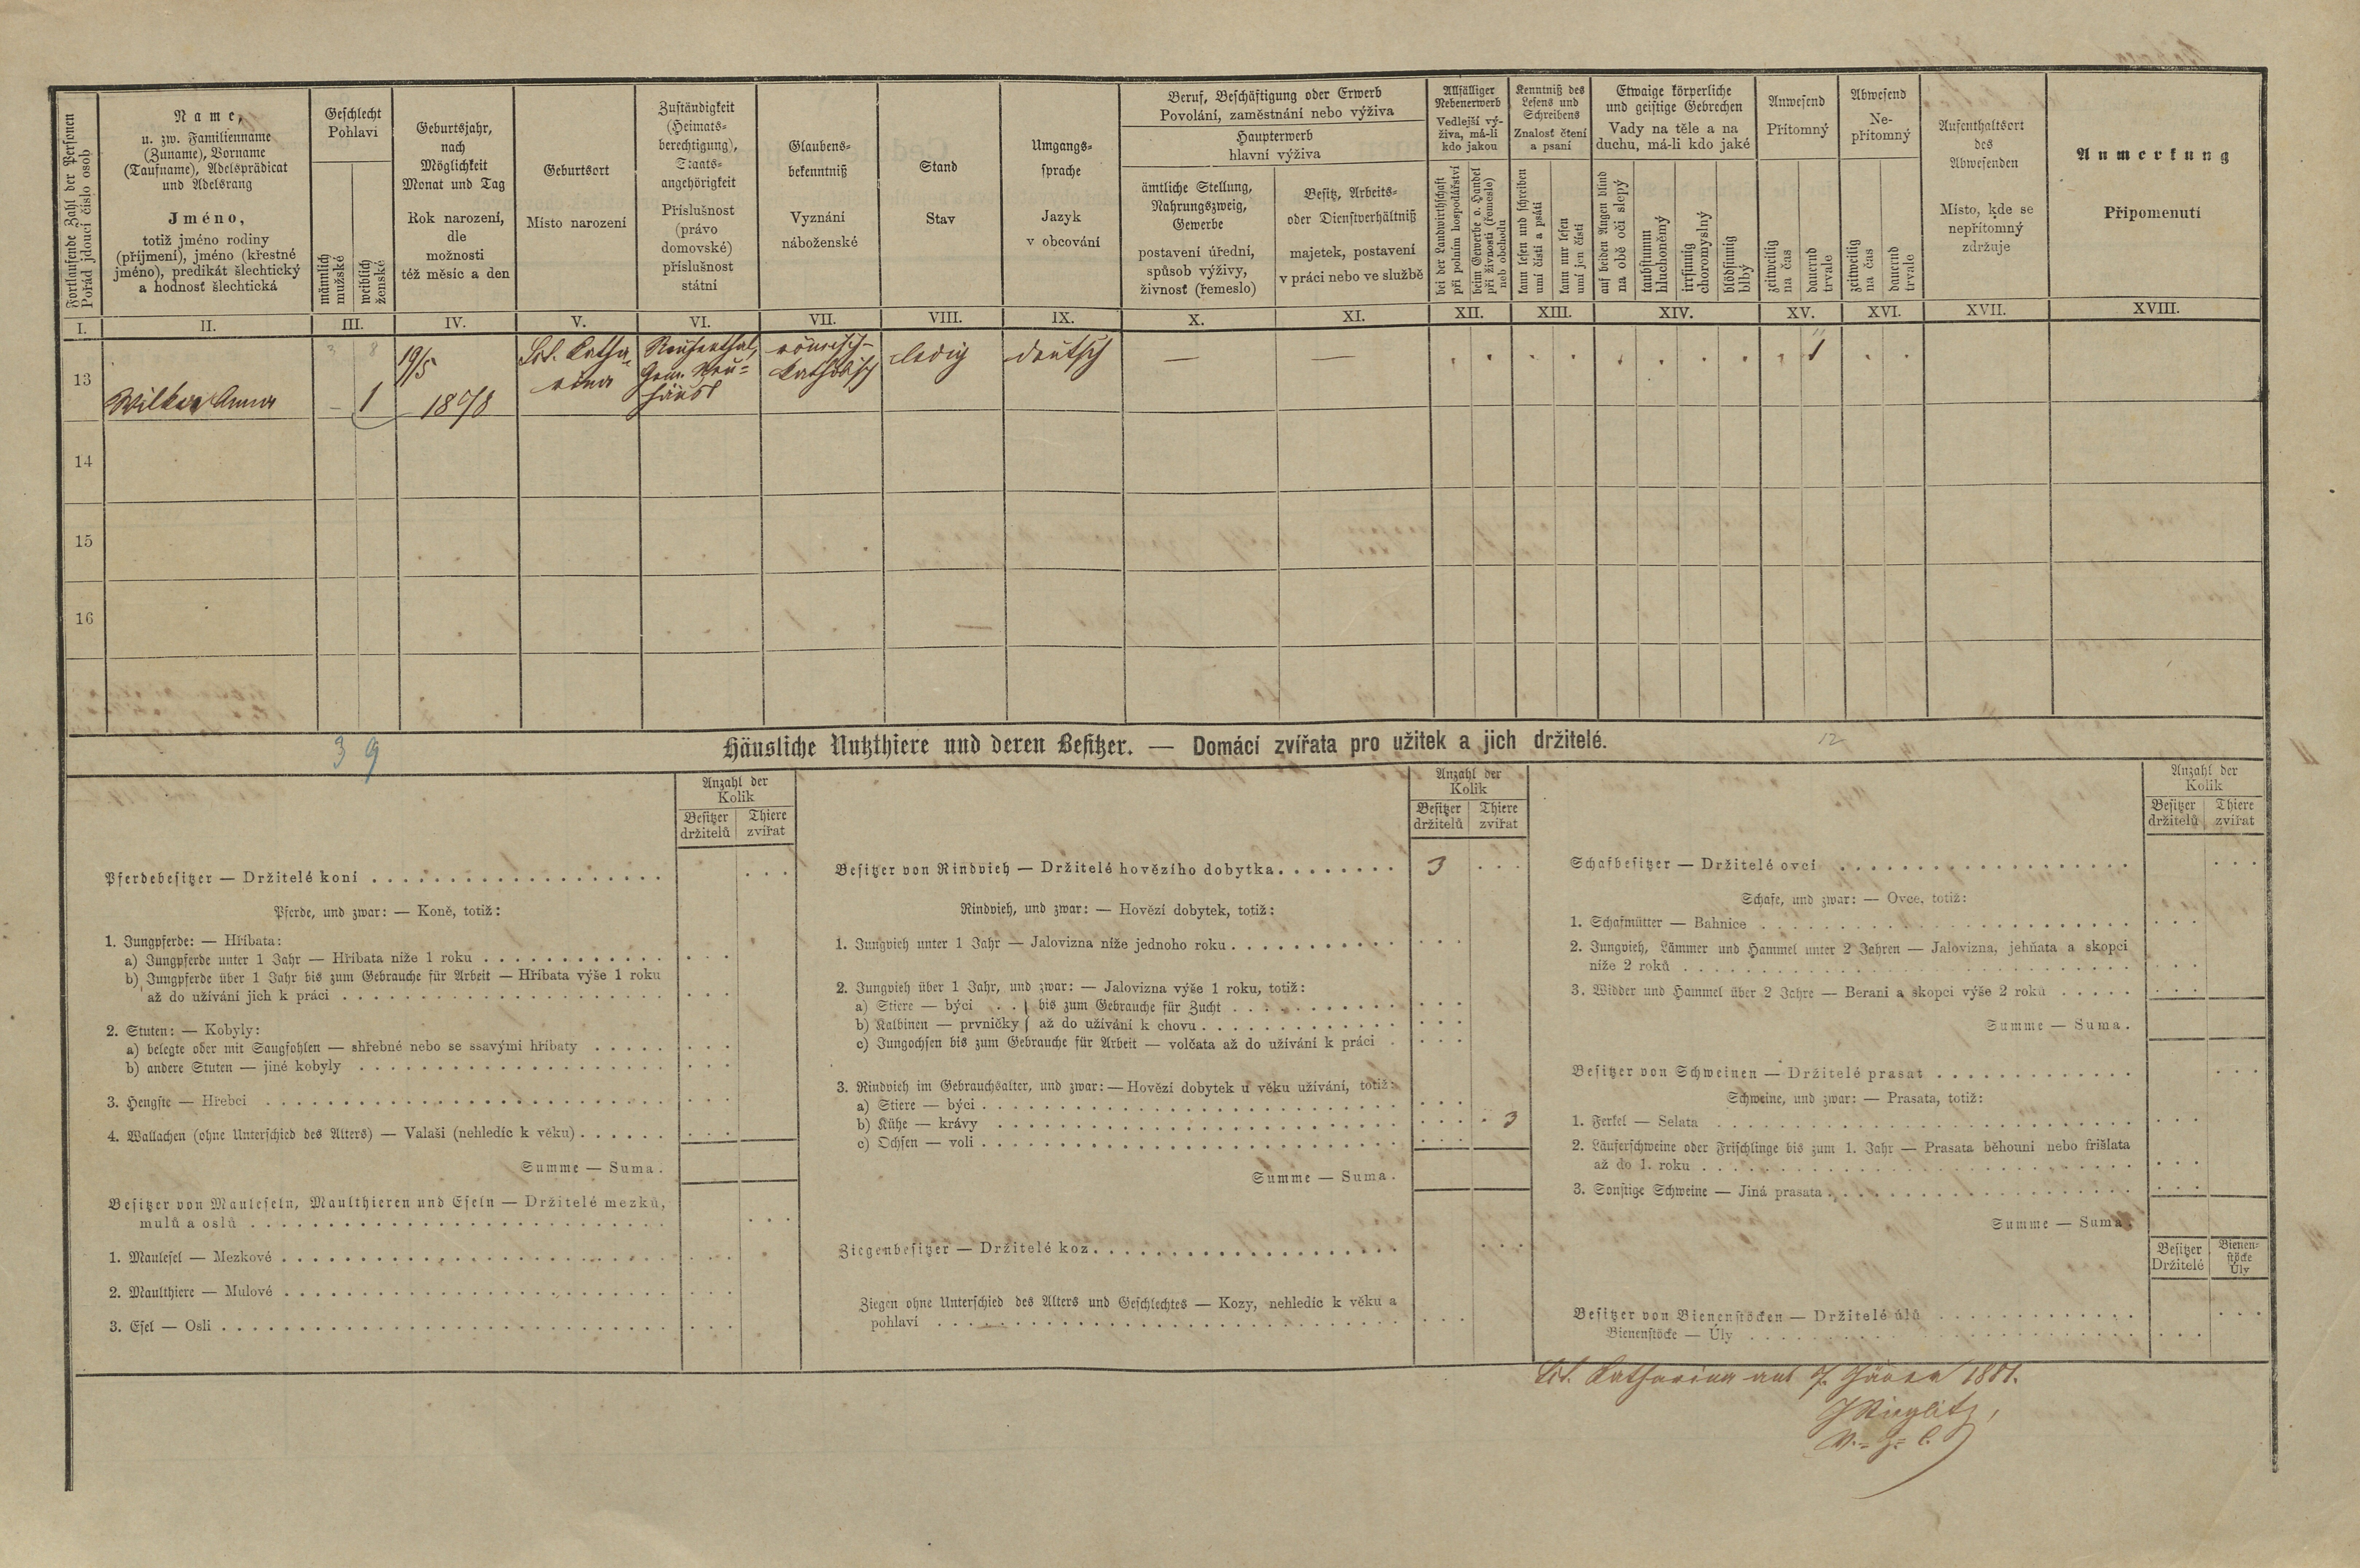 Fortlaufende Zahl der Personen
Pořád jdoucí číslo osob
Name,
u. zw. Familienname
(Zuname), Vorname
(Taufname), Adelsprädicat
und Adelsrang
Jméno,
totiž jméno rodiny
(příjmení), jméno (křestné
jméno), predikát šlechtický
a hodnosť šlechtická
Geschlecht
Pohlaví
männlich
mužské
weiblich
ženské
Geburtsjahr,
nach
Möglichkeit
Monat und Tag
Rok narození,
dle
možnosti
též měsíc a den
Geburtsort
Místo narození
Zuständigkeit
(Heimats-
berechtigung),
Staats-
angehörigkeit
Příslušnost
(právo
domovské)
příslušnost
státní
Glaubens-
bekenntniß
Vyznání
náboženské
Stand
Stav
Umgangs-
sprache
Jazyk
v obcování
Beruf, Beschäftigung oder Erwerb
Povolání, zaměstnání nebo výživa
Haupterwerb
hlavní výživa
ämtliche Stellung,
Nahrungszweig,
Gewerbe
postavení úřední,
spůsob výživy,
živnosť (řemeslo)
Besitz, Arbeits-
oder Dienstverhältniß
majetek, postavení
v práci nebo ve službě
Allfälliger
Nebenerwerb
Vedlejší vý-
živa, má-li
kdo jakou
bei der Landwirthschaft
při polním hospodářství
beim Gewerbe o. Handel
při živnosti (řemeslo)
neb obchodu
Kenntniß des
Lesens und
Schreibens
Znalosť čtení
a psaní
kann lesen und schreiben
umí čísti a psáti
kann nur lesen
umí jen čísti
Etwaige körperliche
und geistige Gebrechen
Vady na těle a na
duchu, má-li kdo jaké
auf beiden Augen blind
na obě oči slepý
taubstumm
hluchoněmý
irrsinnig
choromyslný
blödsinnig
blbý
Anwesend
Přítomný
zeitweilig
na čas
dauernd
trvale
Abwesend
Ne-
přítomný
zeitweilig
na čas
dauernd
trvale
Aufenthaltsort
des
Abwesenden
Místo, kde se
nepřítomný
zdržuje
Anmerkung
Připomenutí
I. II. III. IV. V. VI. VII. VIII. IX. X. XI. XII. XIII. XIV. XV. XVI. XVII. XVIII.
3 8
13 Wilker Anna — 1
19/5
1878
St. Katha-
rina
Neuhäusl
römisch-
katholisch
ledig
deutsch
— — 1
14
15
16
3 9
12
Häusliche Nutzthiere und deren Besitzer. — Domácí zvířata pro užitek a jich držitelé.
Anzahl der
Kolik
Besitzer
držitelů
Thiere
zvířat
Pferdebesitzer — Držitelé koní
Pferde, und zwar: — Koně, totiž:
1. Jungpferde: — Hříbata:
a) Jungpferde unter 1 Jahr — Hříbata níže 1 roku
b) Jungpferde über 1 Jahr bis zum Gebrauche für Arbeit — Hříbata výše 1 roku
až do užívání jich k práci
2. Stuten: — Kobyly:
a) belegte oder mit Saugfohlen — shřebné nebo se ssavými hříbaty
b) andere Stuten — jiné kobyly
3. Hengste — Hřebci
4. Wallachen (ohne Unterschied des Alters) — Valaši (nehledíc k věku)
Summe — Suma.
Besitzer von Mauleseln, Maulthieren und Eseln — Držitelé mezků,
mulů a oslů
1. Maulesel — Mezkové
2. Maulthiere — Mulové
3. Esel — Osli
Anzahl der
Kolik
Besitzer
držitelů
Thiere
zvířat
Besitzer von Rindvieh — Držitelé hovězího dobytka 3
Rindvieh, und zwar: — Hovězí dobytek, totiž:
1. Jungvieh unter 1 Jahr — Jalovizna níže jednoho roku
2. Jungvieh über 1 Jahr, und zwar: — Jalovizna výše 1 roku, totiž:
a) Stiere — býci . . } bis zum Gebrauche für Zucht
b) Kalbinen — prvničky } až do užívání k chovu
c) Jungochsen bis zum Gebrauche für Arbeit — volčata až do užívání k práci
3. Rindvieh im Gebrauchsalter, und zwar: — Hovězí dobytek u věku užívání, totiž:
a) Stiere — býci
b) Kühe — krávy 3
c) Ochsen — voli
Summe — Suma.
Ziegenbesitzer — Držitelé koz
Ziegen ohne Unterschied des Alters und Geschlechtes — Kozy, nehledíc k věku a
pohlaví
Anzahl der
Kolik
Besitzer
držitelů
Thiere
zvířat
Schafbesitzer — Držitelé ovcí
Schafe, und zwar: — Ovce, totiž:
1. Schafmütter — Bahnice
2. Jungvieh, Lämmer und Hammel unter 2 Jahren — Jalovizna, jehňata a skopci
níže 2 roků
3. Widder und Hammel über 2 Jahre — Berani a skopci výše 2 roků
Summe — Suma.
Besitzer von Schweinen — Držitelé prasat
Schweine, und zwar: — Prasata, totiž:
1. Ferkel — Selata
2. Läuferschweine oder Frischlinge bis zum 1. Jahr — Prasata běhouni nebo frišlata
až do 1. roku
3. Sonstige Schweine — Jiná prasata
Summe — Suma.
Besitzer
Držitelé
Bienen-
stöcke
Úly
Besitzer von Bienenstöcken — Držitelé úlů
Bienenstöcke — Úly
St. Katharina am 7. Jänner 1881.